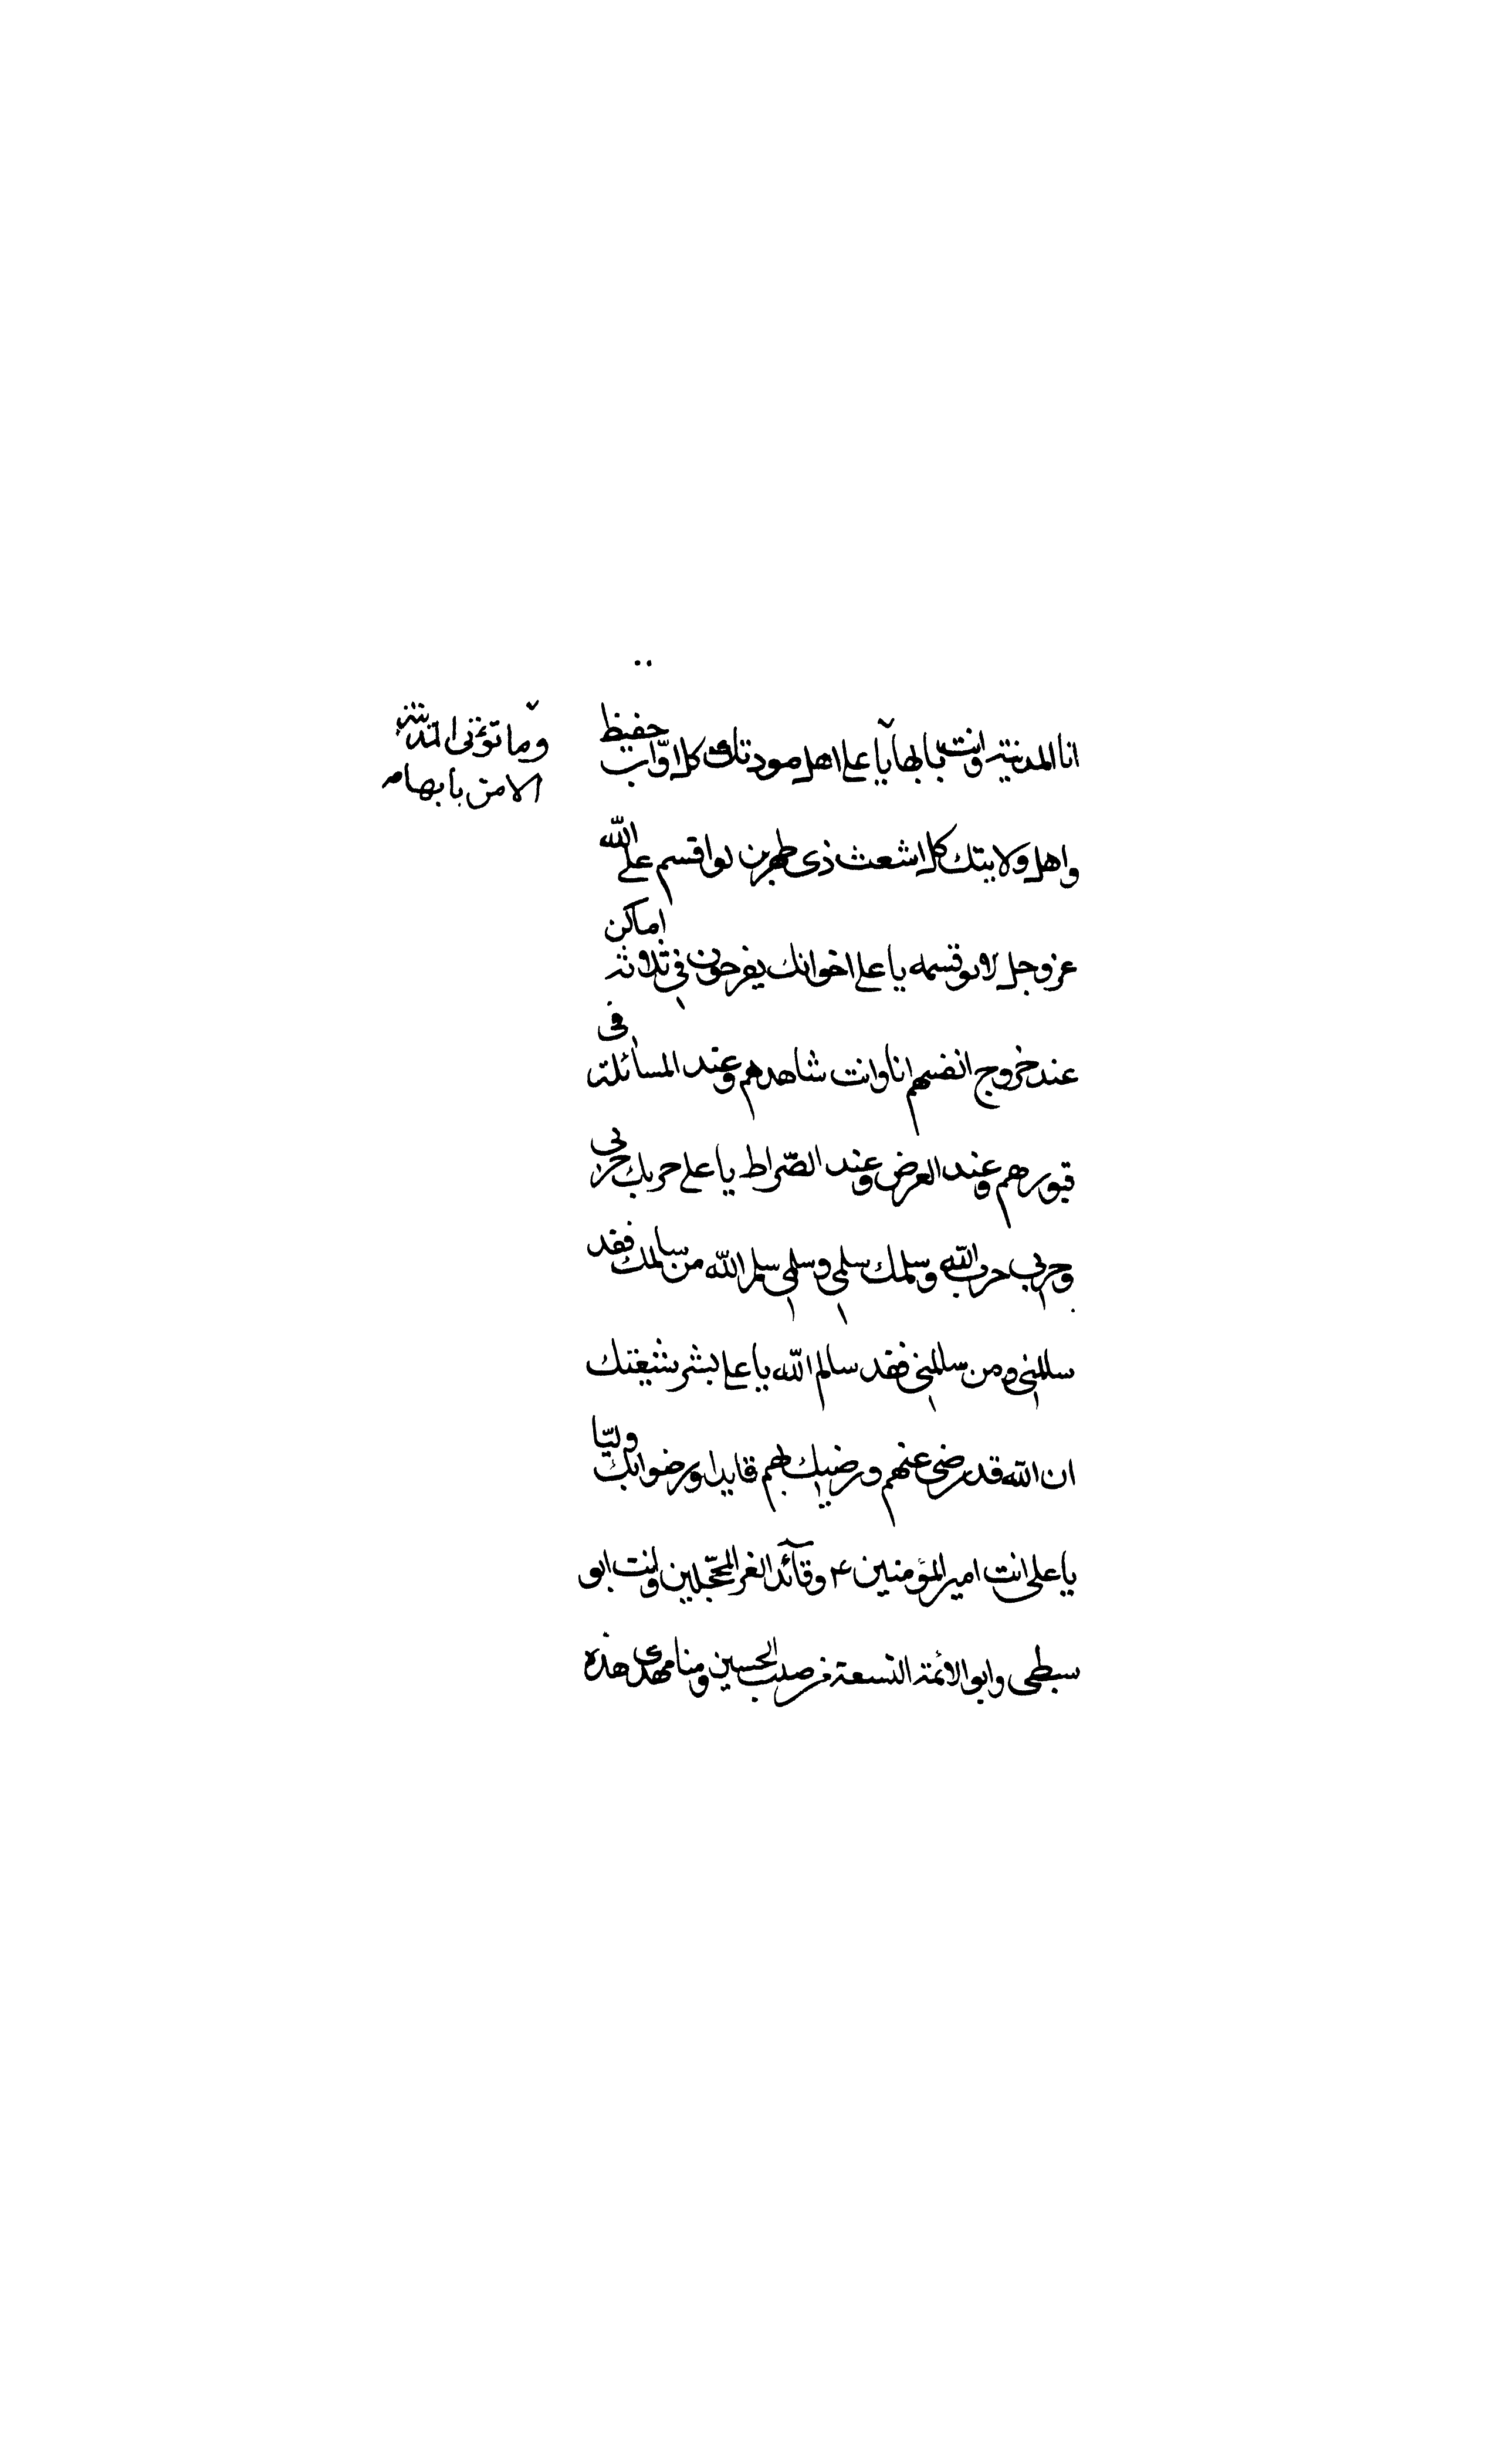 انا المدينة وانت بابها يا على اهل مودتك كل اوّاب حفيظ
واهل ولايتك كل اشعث ذى طمرين لو اقسم على الله
عز وجل لابر قسمه يا على اخوانك يفرحون فى ثلاثة اماكن
عند خروج انفسهم انا وانت شاهدهم وعند المسائلة فى
قبورهم وعند العرض وعند الصّراط يا على حربك حربى
وحربى حرب الله وسلمك سلمى وسلمى سلم الله من سالمك فقد
سالمنى ومن سالمنى فقد سالم الله يا على بشر شيعتك
ان الله قد رضى عنهم ورضيك لهم قايدا ورضوا بك وليّا
يا على انت امير المؤمنين ع وقآئد الغر المحجّلين وانت ابو
سبطى وابو الائمة التسعة من صلب الحسين ومنا مهدى هذه
وما تؤتى المدينة
الا من بابها م